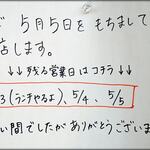 5月5日をもちまして
店します。
↓↓残る営業日はコチラ↓↓
3(ランチやるよ)、5/4、5/5
い間でしたがありがとうございま